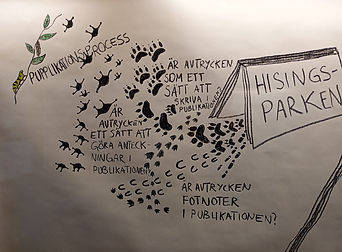 PUPPLIKATIONSPROCESS
ÄR AVTRYCKEN
SOM ETT
SÄTT ATT
SKRIVA I
PUBLIKATIONEN?
HISINGS-
PARKEN
ÄR
AVTRYCKEN
ETT SÄTT ATT
GÖRA ANTECK-
NINGAR I
PUBLIKATIONEN?
ÄR AVTRYCKEN
FOTNOTER
I PUBLIKATIONEN?